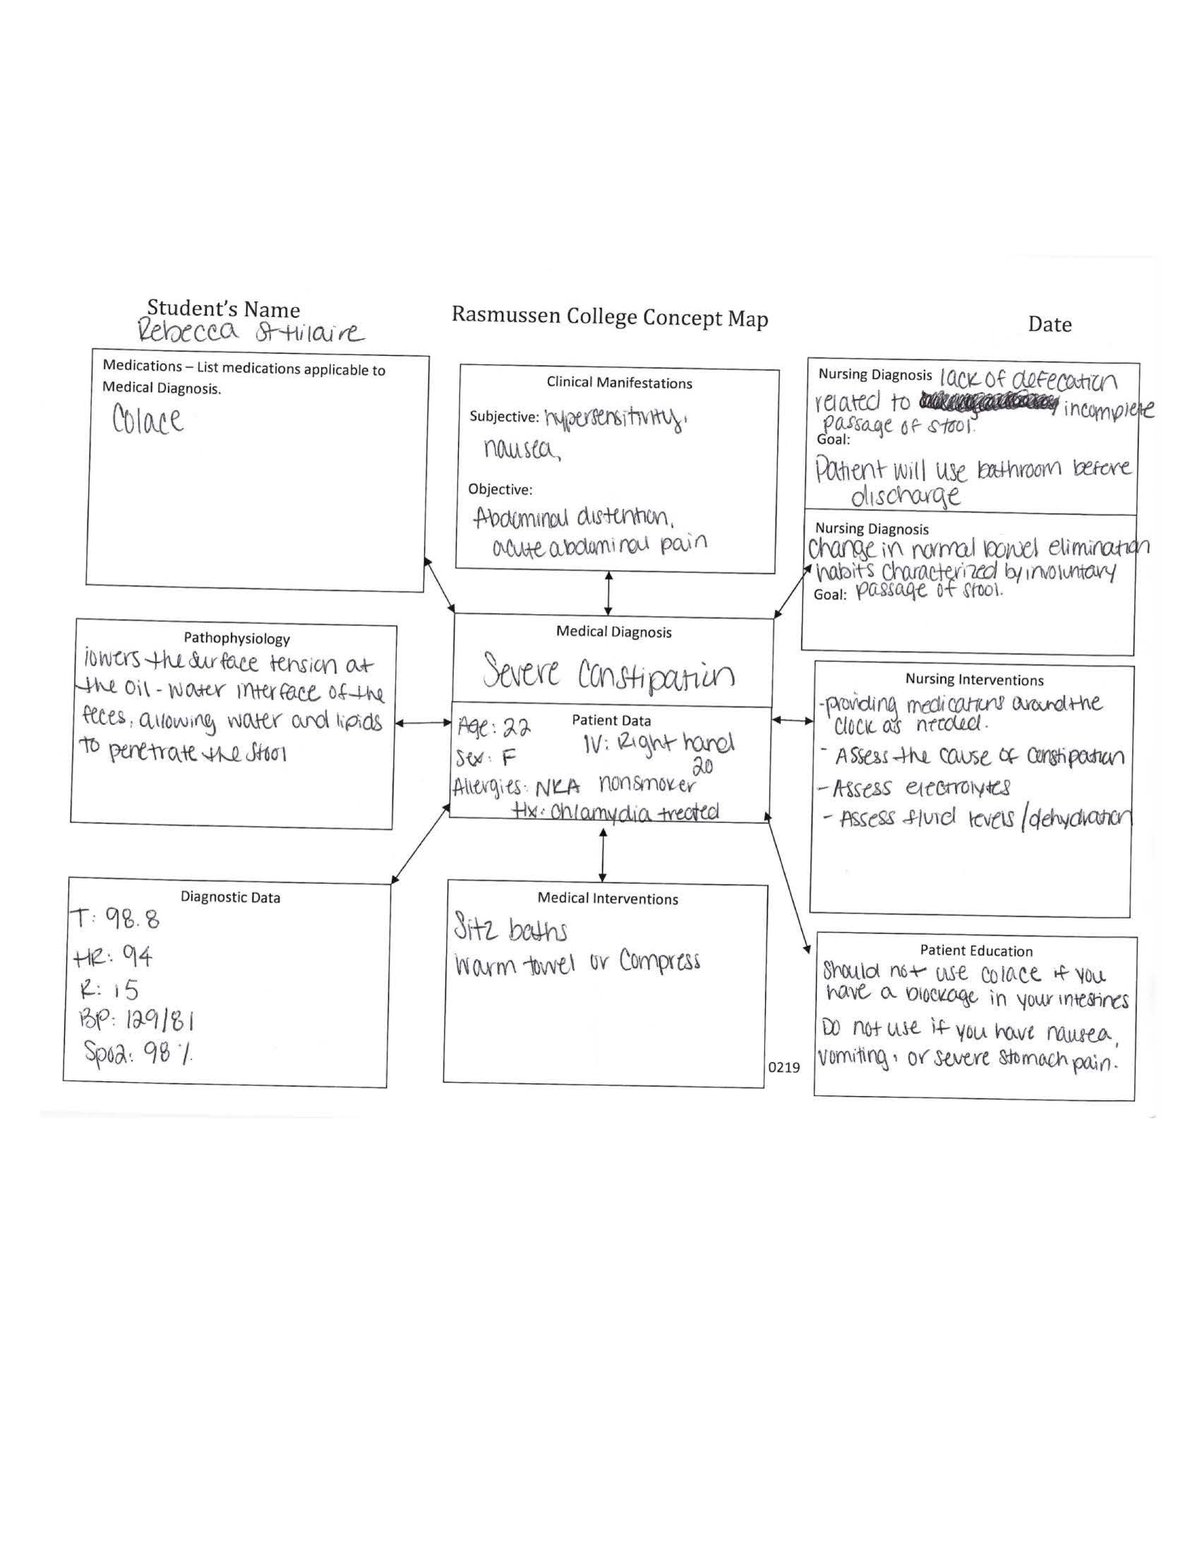 Student's Name
Rebecca St Hilaire
Rasmussen College Concept Map
Date
Medications – List medications applicable to
Medical Diagnosis.
Colace
Clinical Manifestations
Subjective: hypersensitivity,
nausea,
Objective:
Abdominal distention,
acute abdominal pain
Nursing Diagnosis lack of defecation
related to incomplete
passage of stool.
Goal:
Patient will use bathroom before
discharge
Nursing Diagnosis
Change in normal bowel elimination
habits characterized by involuntary
Goal: passage of stool.
Pathophysiology
lowers the surface tension at
the oil-water interface of the
feces, allowing water and lipids
to penetrate the stool
Medical Diagnosis
Severe Constipation
Patient Data
Age: 22
IV: Right hand
20
Sex: F
Allergies: NKA nonsmoker
Hx: Chlamydia treated
Nursing Interventions
-providing medications around the
clock as needed.
- Assess the cause of constipation
- Assess electrolytes
- Assess fluid levels/dehydration
Diagnostic Data
T: 98.8
HR: 94
R: 15
BP: 129/81
Spo2: 98%.
Medical Interventions
Sitz baths
Warm towel or compress
0219
Patient Education
Should not use colace if you
have a blockage in your intestines
Do not use if you have nausea,
vomiting, or severe stomach pain.